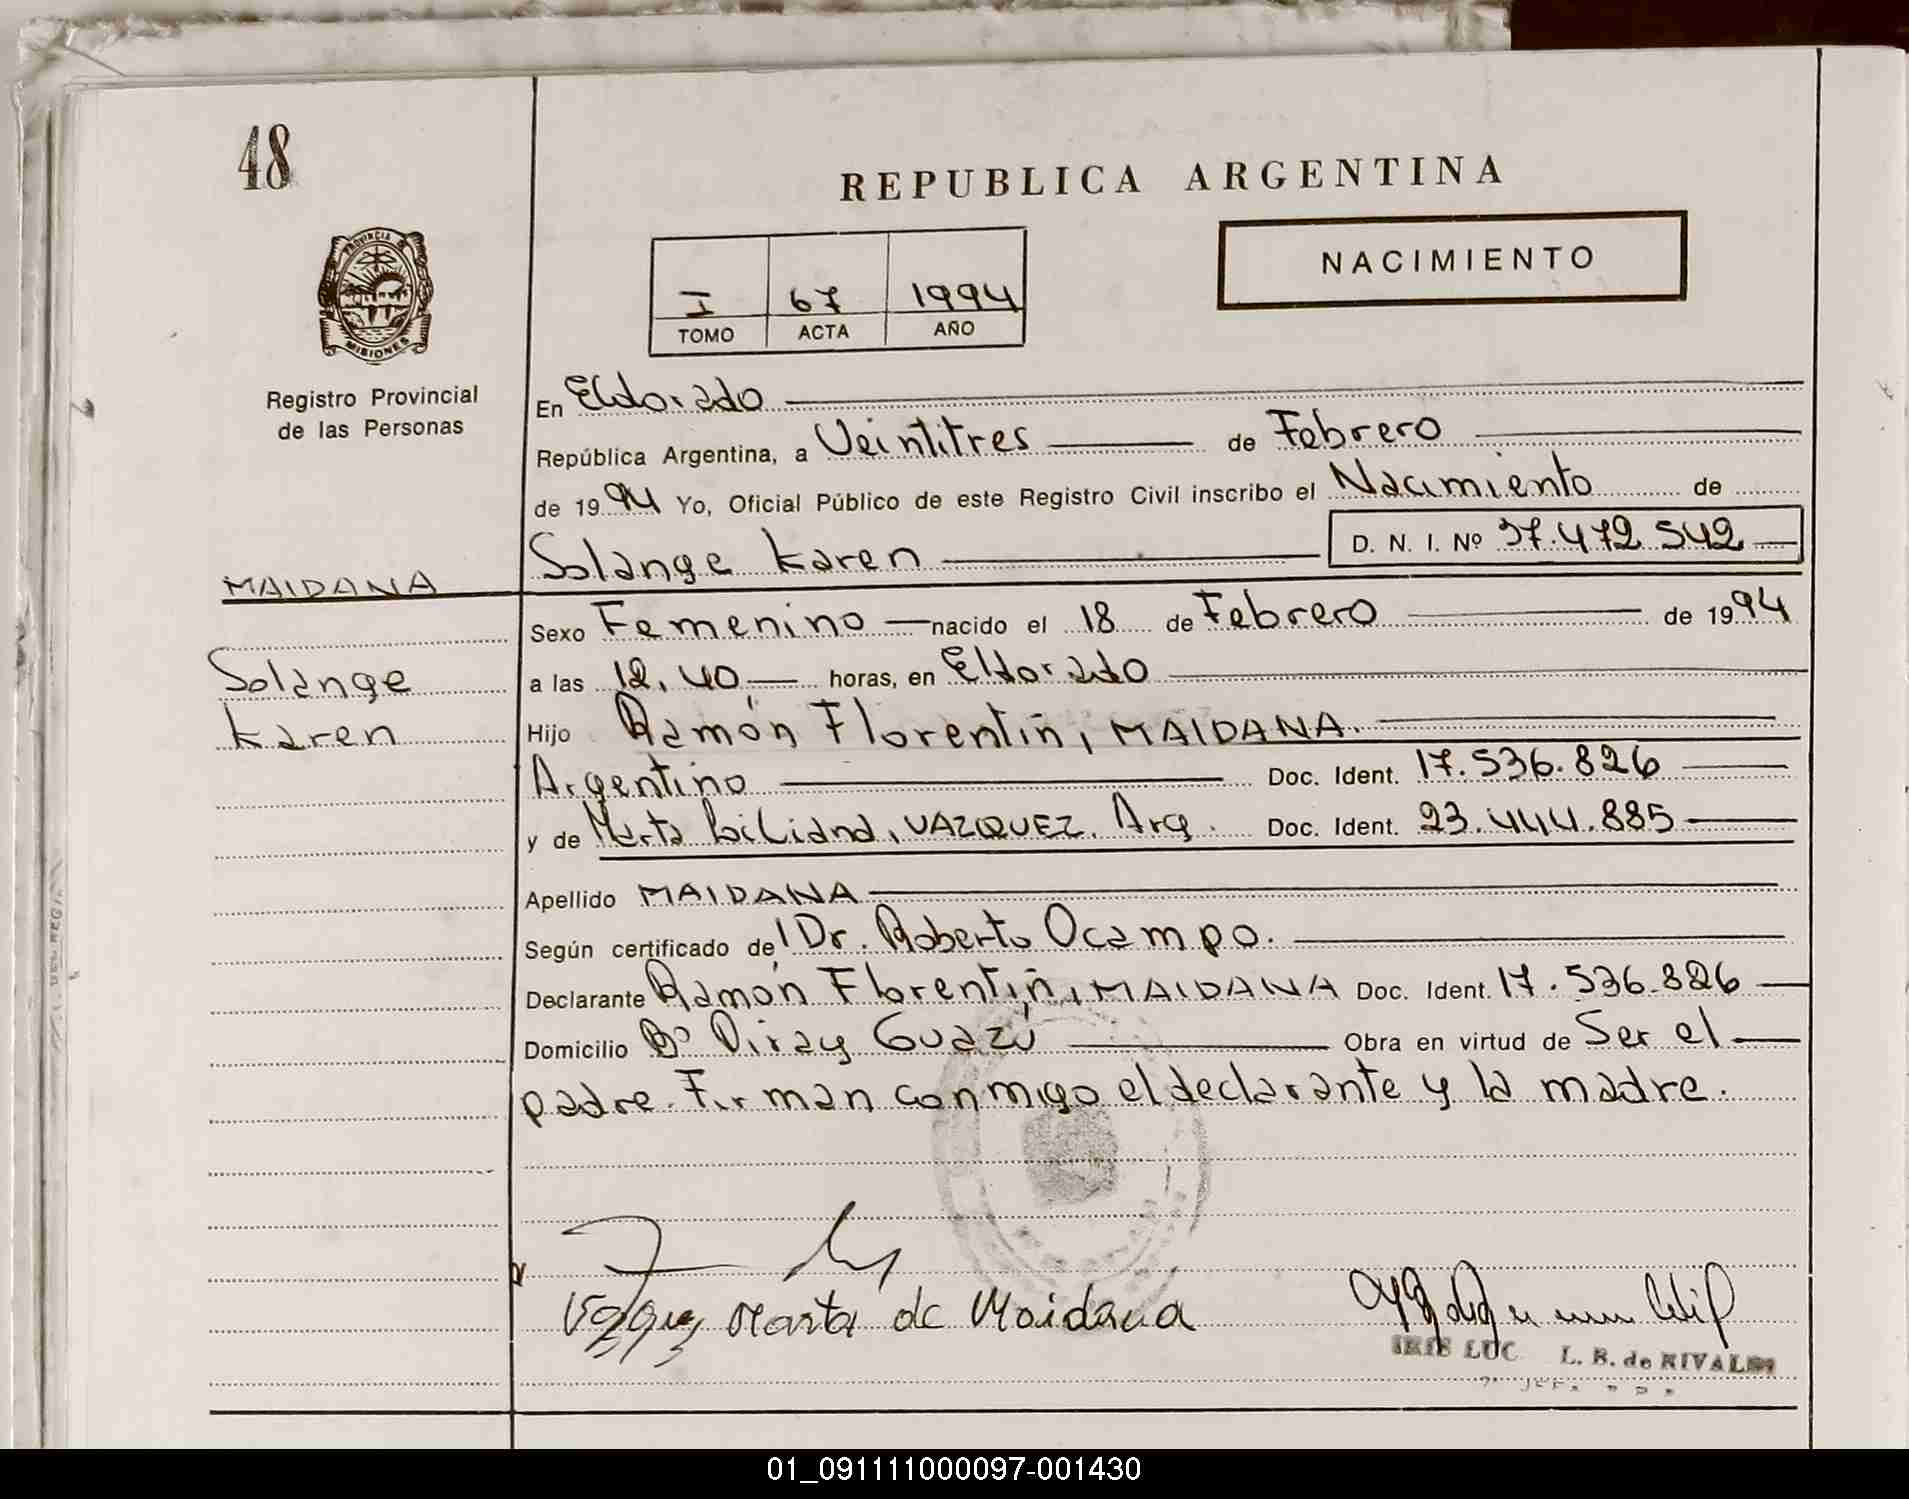 48
REPUBLICA ARGENTINA
PROVINCIA DE
MISIONES
NACIMIENTO
I 67 1994
TOMO ACTA AÑO
Registro Provincial
de las Personas
En Eldorado
República Argentina, a Veintitres de Febrero
de 1994 Yo, Oficial Público de este Registro Civil inscribo el Nacimiento de
Solange Karen D. N. I. Nº 37.472.542
MAIDANA
Solange
Karen
Sexo Femenino nacido el 18 de Febrero de 1994
a las 12,40 horas, en Eldorado
Hijo Ramón Florentin, MAIDANA.
Argentino Doc. Ident. 17.536.826
y de Marta Liliana, VAZQUEZ. Arg. Doc. Ident. 23.444.885
Apellido MAIDANA
Según certificado de l Dr. Roberto Ocampo.
Declarante Ramón Florentin, MAIDANA Doc. Ident. 17.536.826
Domicilio Bº Piray Guazú Obra en virtud de Ser el
padre. Firman conmigo el declarante y la madre.
Marta de Maidana
IRIS LUC L. B. de RIVALDI
01_091111000097-001430